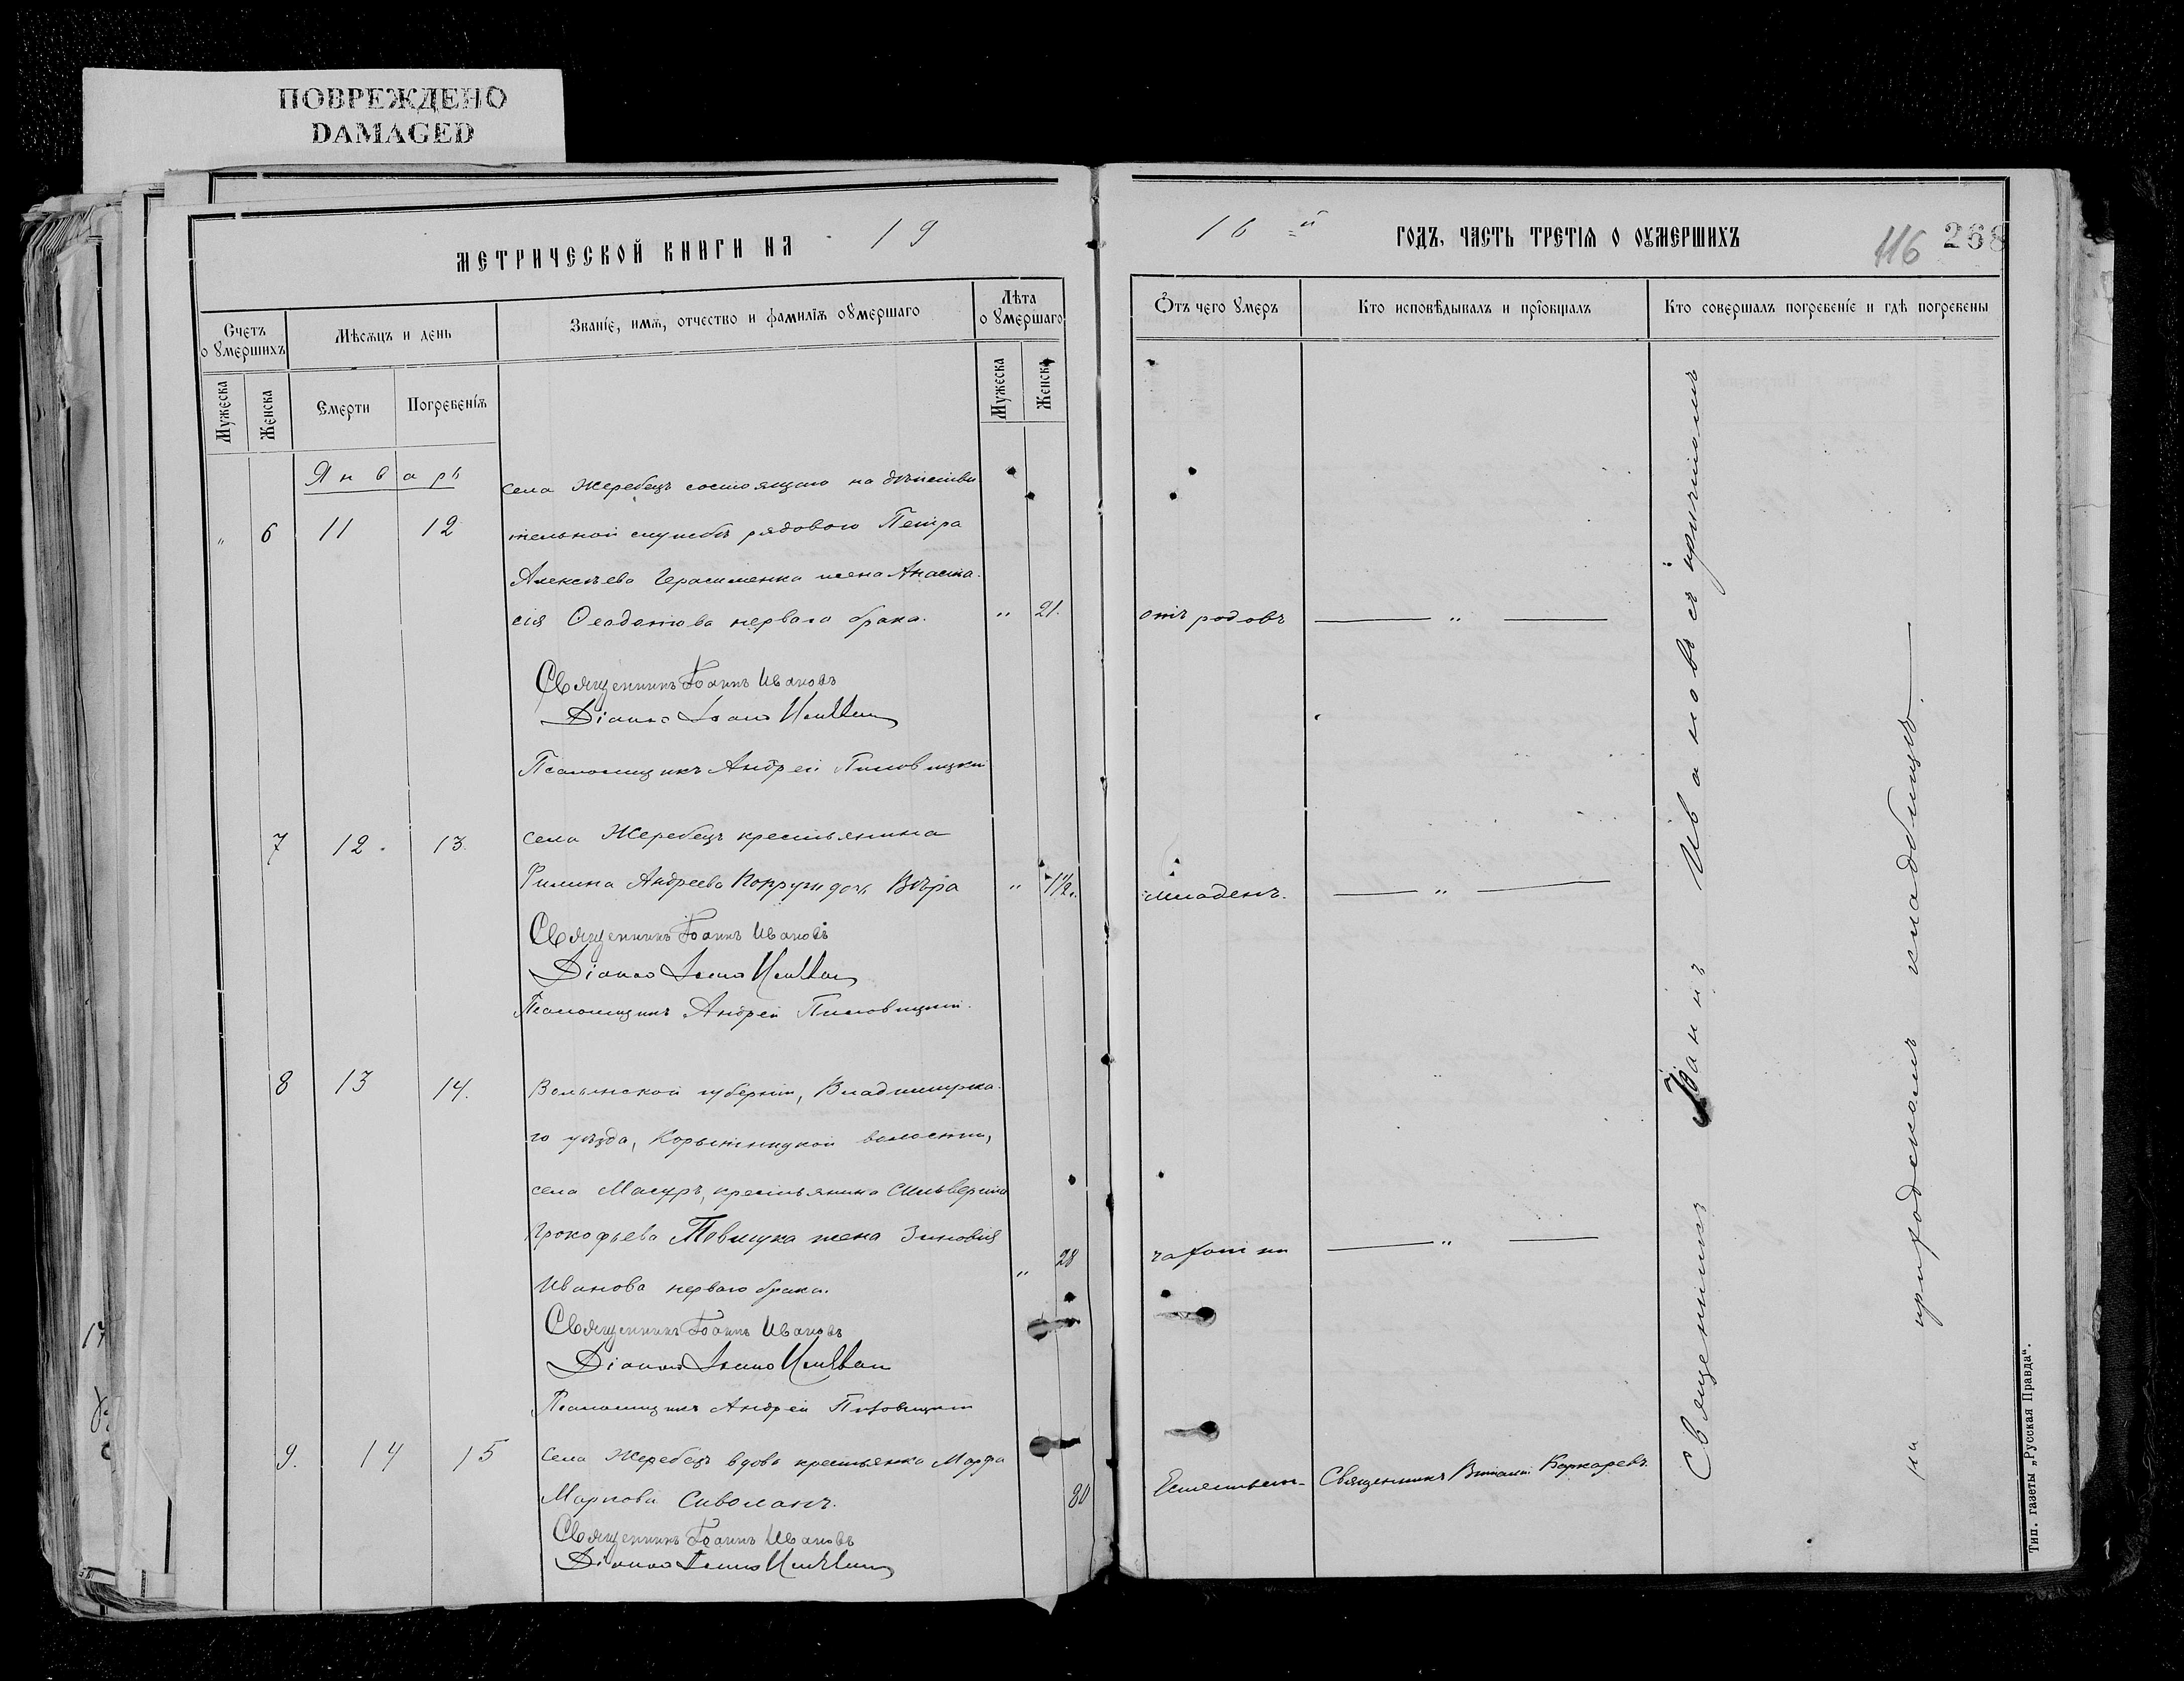 ПОВРЕЖДЕНО
DAMAGED
МЕТРИЧЕСКОЙ КНИГИ НА 19
16-й ГОДЪ, ЧАСТЬ ТРЕТІЯ О ОУМЕРШИХЪ
116 268
Счетъ о умершихъ
Мѣсяцъ и день
Званіе, имя, отчество и фамилія оумершаго
Лѣта о умершаго
Отъ чего умеръ
Кто исповѣдывалъ и пріобщалъ
Кто совершалъ погребеніе и гдѣ погребены
Мужеска
Женска
Смерти
Погребенія
Мужеска
Женска
Январь
села Жеребецъ состоящаго на дѣйстви
" 6 11 12 тельной службѣ рядового Петра
Алексѣева Герасименка жена Анаста-
сія Ѳеодотова перваго брака. " 21. отъ родовъ — " —
Священникъ Іоаннъ Ивановъ
Псаломщикъ Андрей
7 12. 13. села Жеребецъ крестьянина
Филипа Андреева дочь Вѣра " 1 1/2. младенч. — " —
Священникъ Іоаннъ Ивановъ
Псаломщикъ Андрей
8 13 14. Волынской губерніи, Владимирска-
го уѣзда, Корытницкой волости,
села Мосуръ, крестьянина Сильверста
Прокофьева жена Зиновія
" 28 чахотки — " —
Иванова перваго брака.
Священникъ Іоаннъ Ивановъ
Псаломщикъ Андрей
9. 14 15 Села Жеребецъ вдова крестьянка Марфа
Маркова Сиволапъ. 80 Естествен- Священникъ Виталій
Священникъ Іоаннъ Ивановъ
Священникъ Іоаннъ Ивановъ съ причтомъ
на приходскомъ кладбищѣ.
Тип. газеты „Русская Правда“.
17